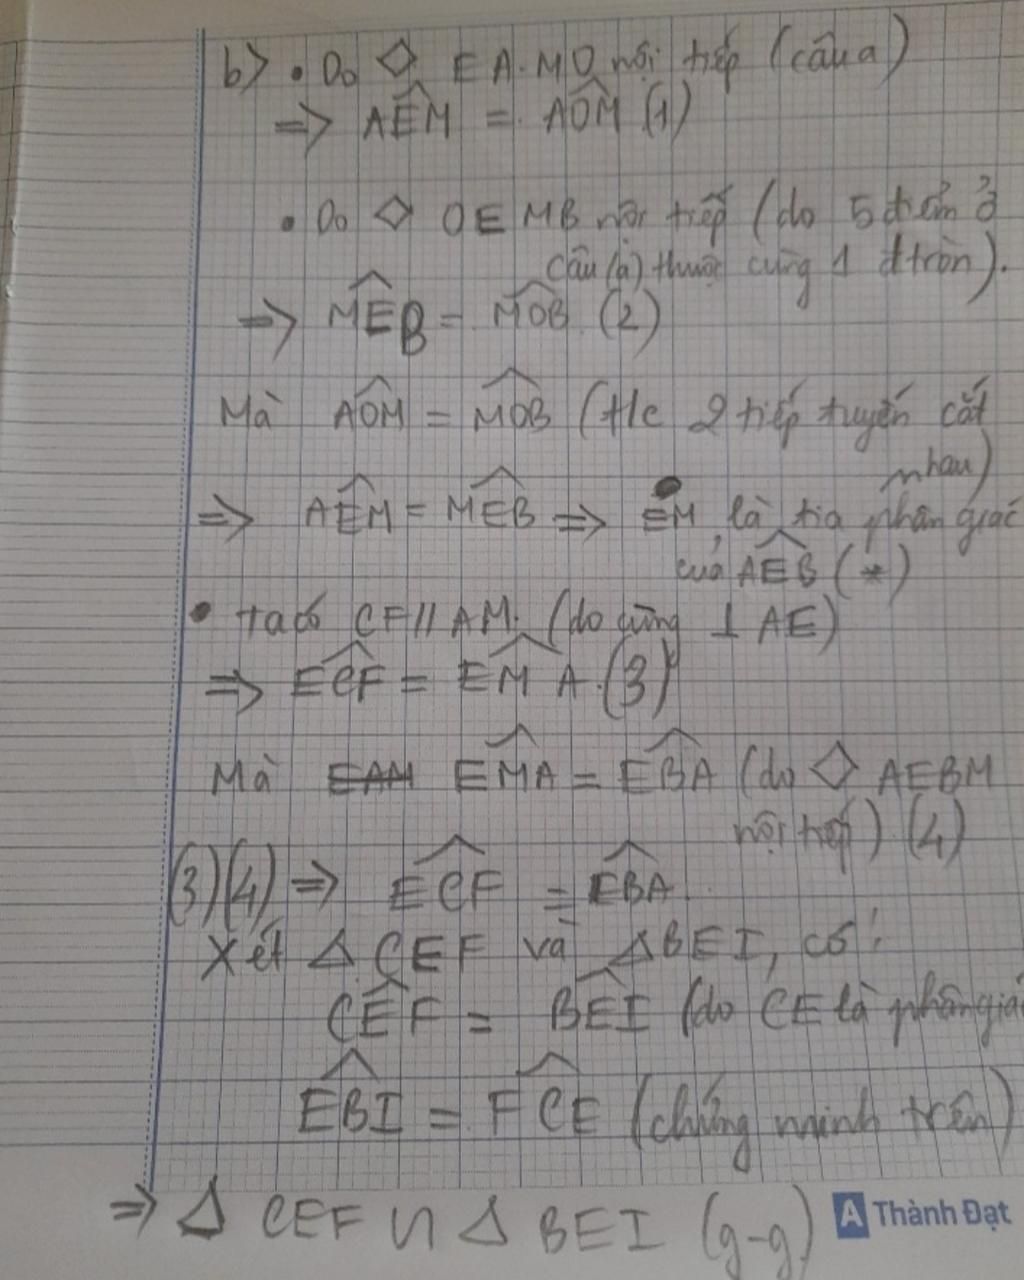 b) • Do ◇ EAMO nội tiếp (câu a)
=> AÊM = AÔM (1)
• Do ◇ OEMB nội tiếp (do 5 điểm ở
câu (a) thuộc cùng 1 đtròn).
=> MÊB = MÔB (2)
Mà AÔM = MÔB (t/c 2 tiếp tuyến cắt
nhau)
=> AÊM = MÊB => EM là tia phân giác
của AÊB (*)
• ta có CF // AM. (do cùng ⊥ AE)
=> EĈF = EM̂A. (3)
Mà EAM EM̂A = EB̂A (do ◇ AEBM
nội tiếp) (4)
(3)(4) => EĈF = EB̂A.
Xét Δ CEF và ΔBEI, có:
CÊF = BÊI (do CE là phân giác
EB̂I = FĈE (chứng minh trên)
=> Δ CEF ∽ Δ BEI (g-g)
A Thành Đạt